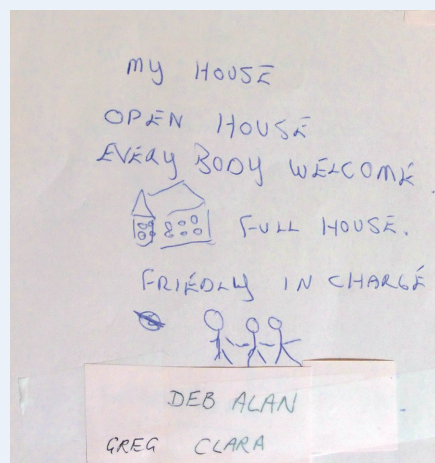 MY HOUSE
OPEN HOUSE
EVERY BODY WELCOME
FULL HOUSE.
FRIEDLY IN CHARGE
DEB ALAN
GREG CLARA